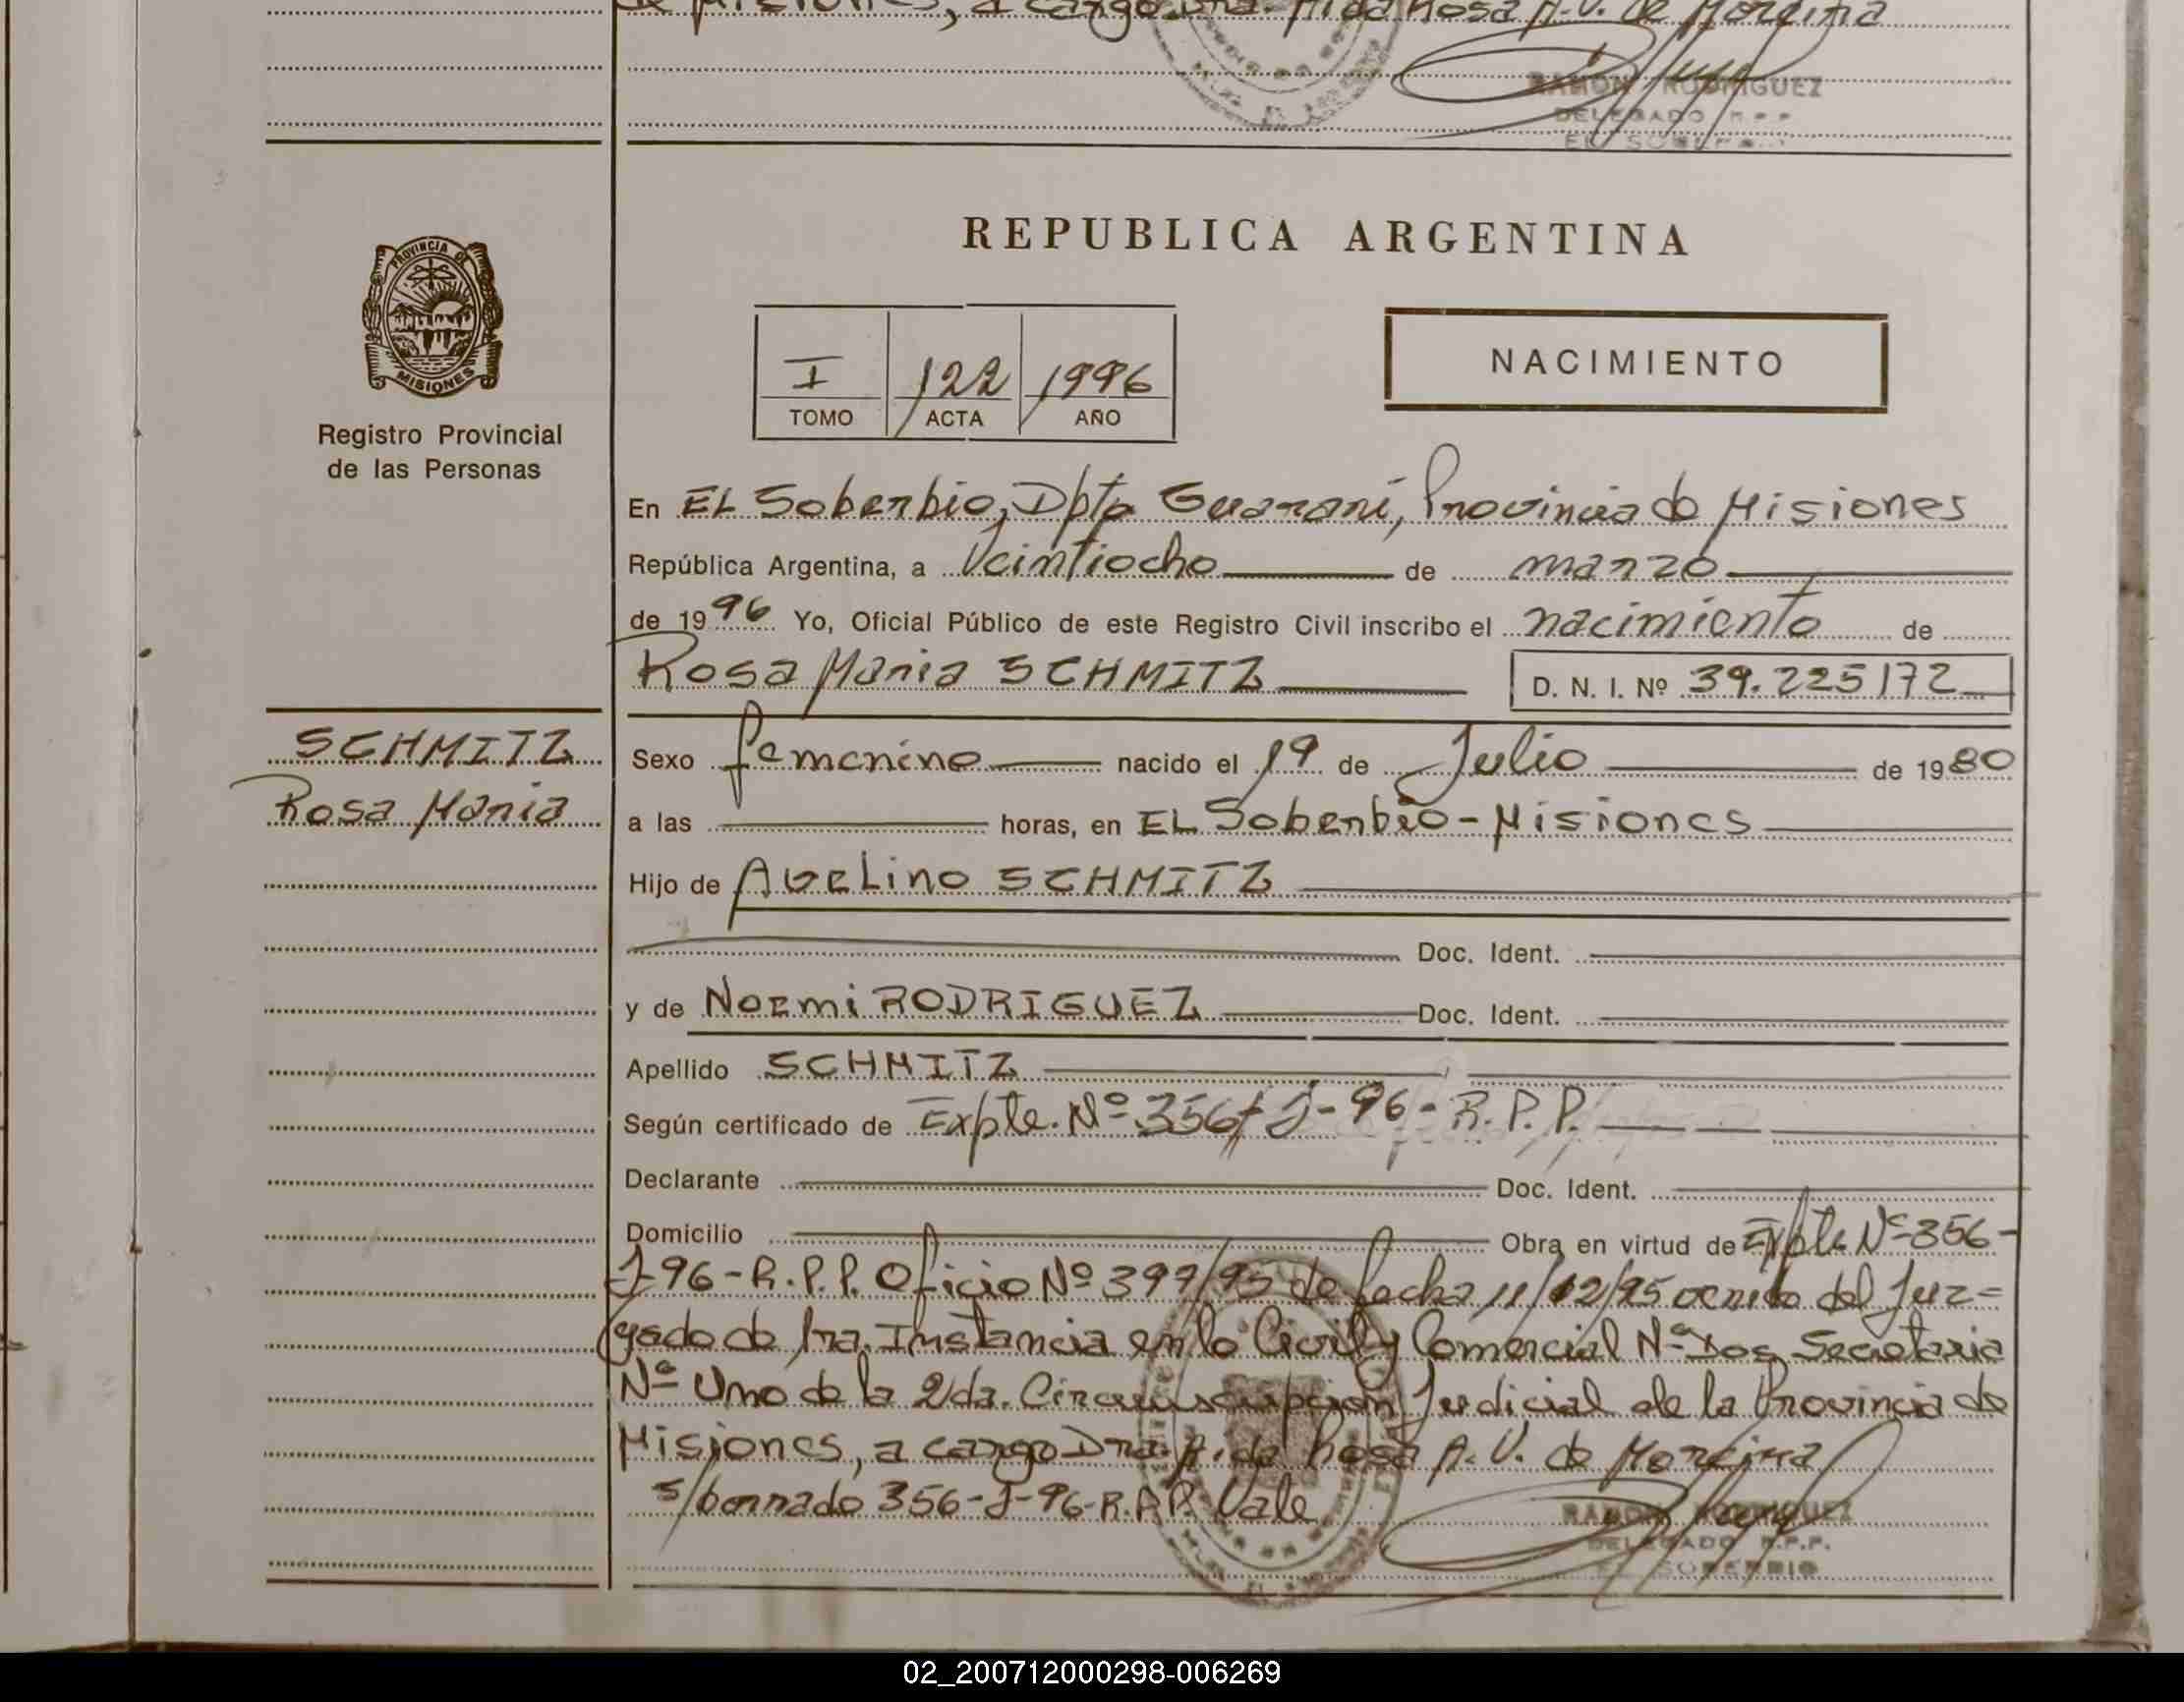 de Misiones, a cargo Dra. Aida Rosa A.V. de Moreira
RAMON RODRIGUEZ
DELEGADO R.P.P.
EL SOBERBIO
REPUBLICA ARGENTINA
PROVINCIA DE
MISIONES
Registro Provincial
de las Personas
I 122 1996
TOMO ACTA AÑO
NACIMIENTO
En EL Soberbio, Dpto Guaraní, Provincia de Misiones
República Argentina, a Veintiocho de marzo
de 1996 Yo, Oficial Público de este Registro Civil inscribo el nacimiento de
Rosa Maria SCHMITZ D. N. I. Nº 39.225172
SCHMITZ
Rosa Maria
Sexo femenino nacido el 19 de Julio de 1980
a las horas, en EL Soberbio - Misiones
Hijo de AVELino SCHMITZ
Doc. Ident.
y de NoEmi RODRIGUEZ Doc. Ident.
Apellido SCHMITZ
Según certificado de Expte. Nº 356-J-96-R.P.P.
Declarante Doc. Ident.
Domicilio Obra en virtud de Expte Nº 356-
J-96-R.P.P. Oficio Nº 397/95 de fecha 11/12/95 venido del Juz=
gado de 1ra. Instancia en lo Civil y Comercial Nº Dos, Secretaria
Nº Uno de la 2da. Circunscripcion Judicial de la Provincia de
Misiones, a cargo Dra. Aida Rosa A. V. de Moreira
s/borrado 356-J-96-R.P.P. Vale
RAMON RODRIGUEZ
DELEGADO R.P.P.
EL SOBERBIO
02_200712000298-006269